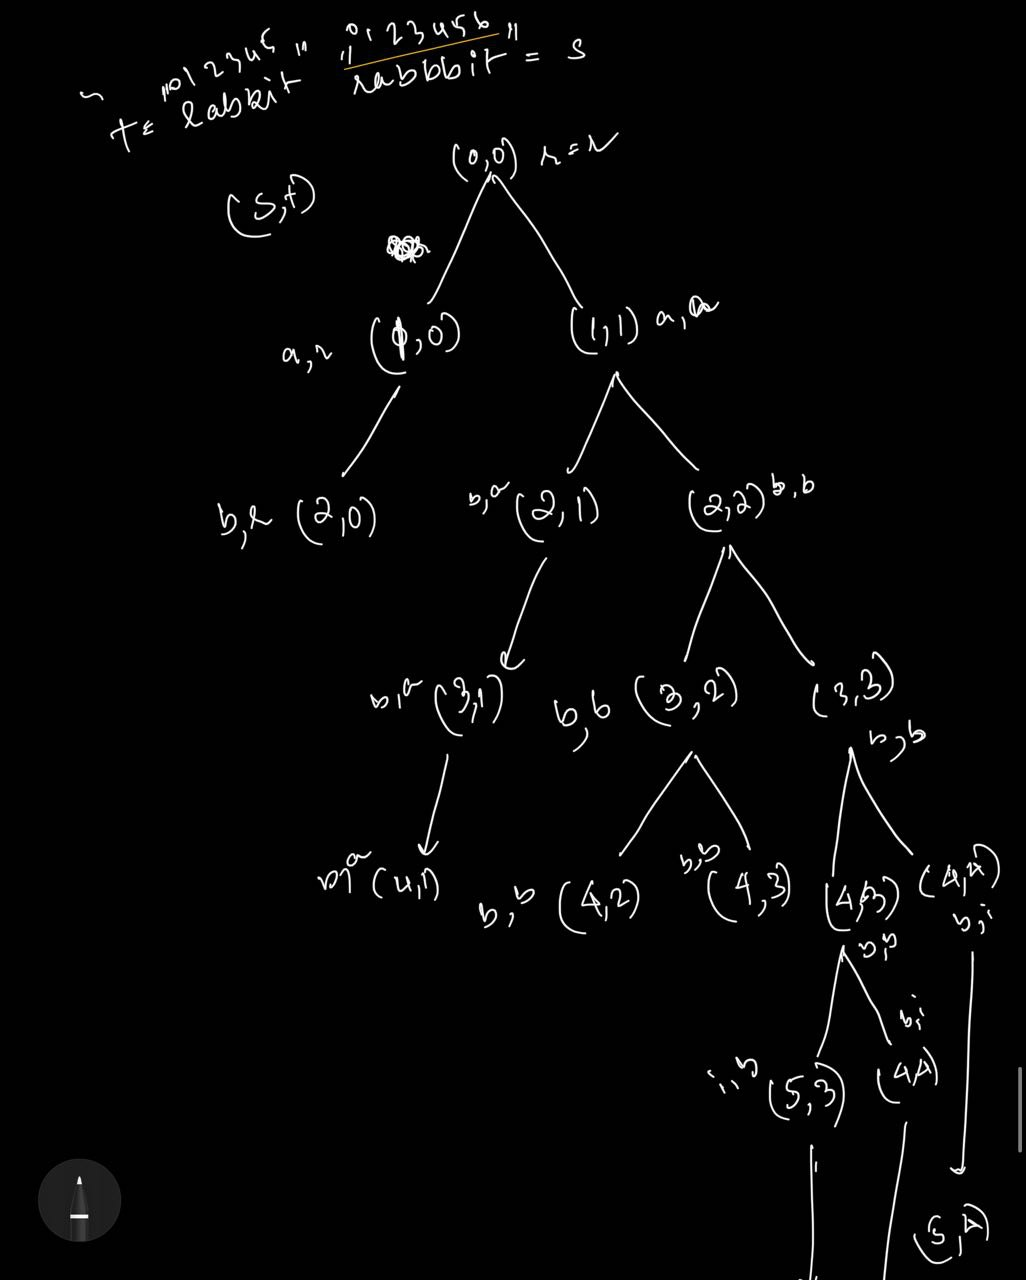 "012345" "0123456"
t= rabbit rabbbit = s
(0,0) r=r
(s,t)
a,r (1,0) (1,1) a,a
b,r (2,0) b,a (2,1) (2,2) b,b
b,a (3,1) b,b (3,2) (3,3)
b,b
b,a (4,1) b,b (4,2) b,b (4,3) (4,3) (4,4)
b,b b,i
b,i
i,b (5,3) (4,4)
(5,4)